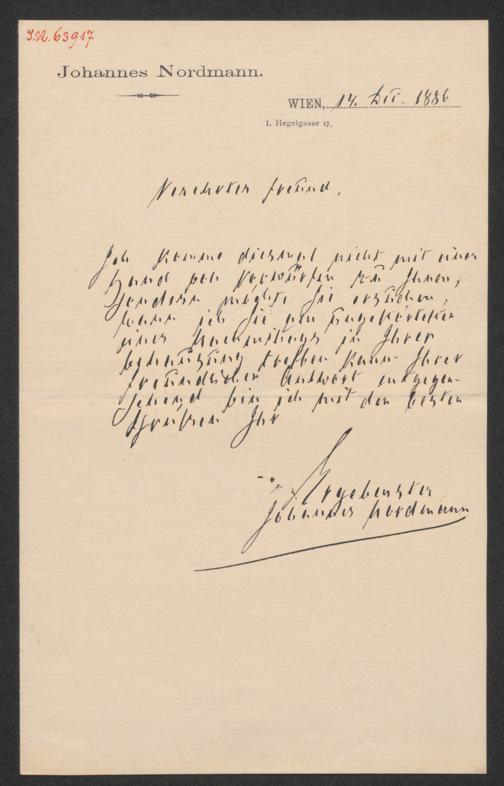 I.N. 63917
Johannes Nordmann.
WIEN, 14. Dez. 1886
I. Hegelgasse 17.
Verehrter Freund,
Ich komme diesmal nicht mit einer
Hand voll Vorwürfen zu Ihnen,
sondern möchte Sie ersuchen,
wann ich Sie am
eines Nachmittags in Ihrer
Behausung treffen kann. Ihrer
freundlichen Antwort entgegen-
sehend bin ich mit den besten
Grüßen Ihr
Ergebenster
Johannes Nordmann